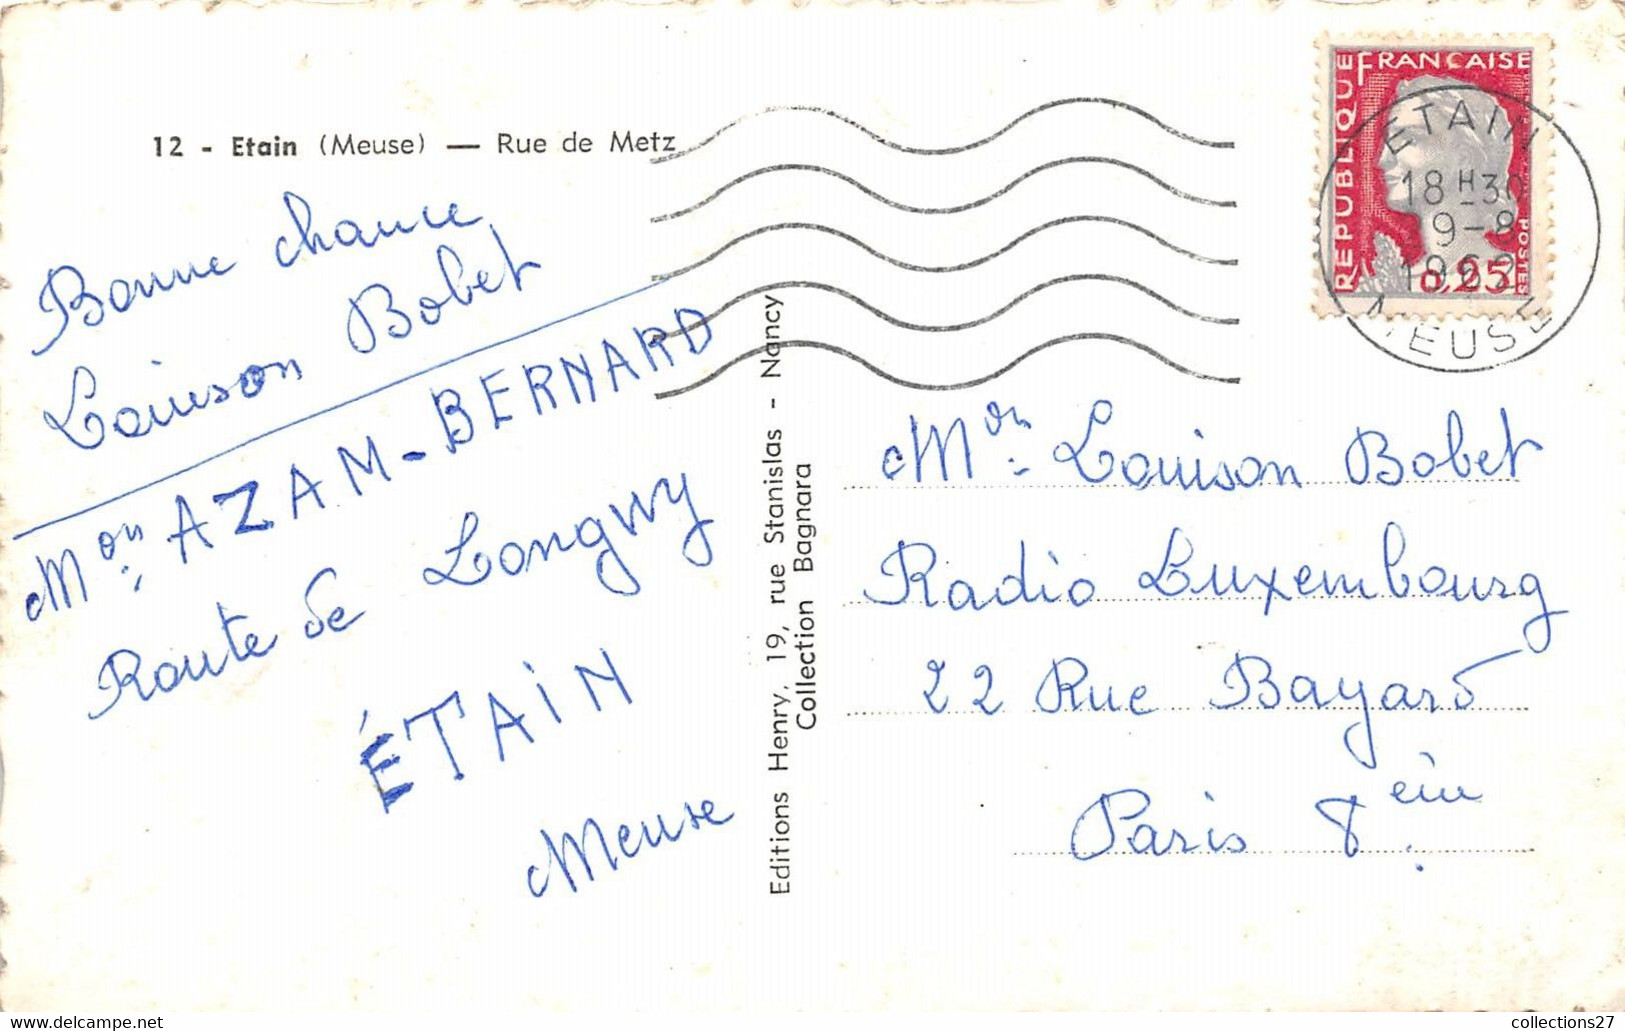 12 - Etain (Meuse) — Rue de Metz
Bonne chance
Louison Bobet
Mon: AZAM-BERNARD
Route de Longwy
ÉTAIN
Meuse
Editions Henry, 19, rue Stanislas - Nancy
Collection Bagnara
REPUBLIQUE FRANÇAISE
POSTES
0,25
ETAIN
18 H 30
9-8
1962
MEUSE
Mon: Louison Bobet
Radio Luxembourg
22 Rue Bayard
Paris 8.eiu
collections27